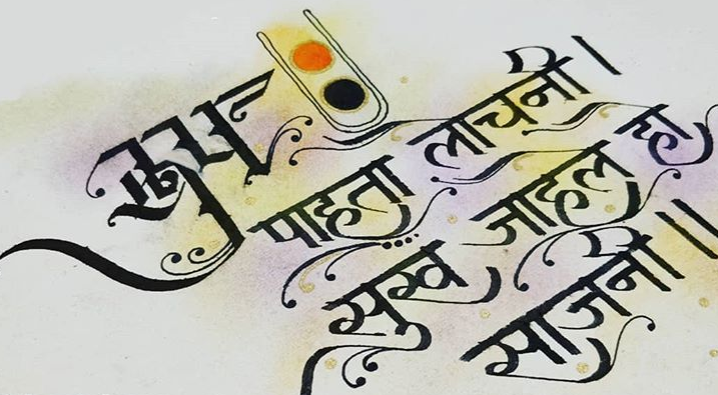 रूप
पाहता लोचनी ।
सुख जाहले हो
साजनी ॥